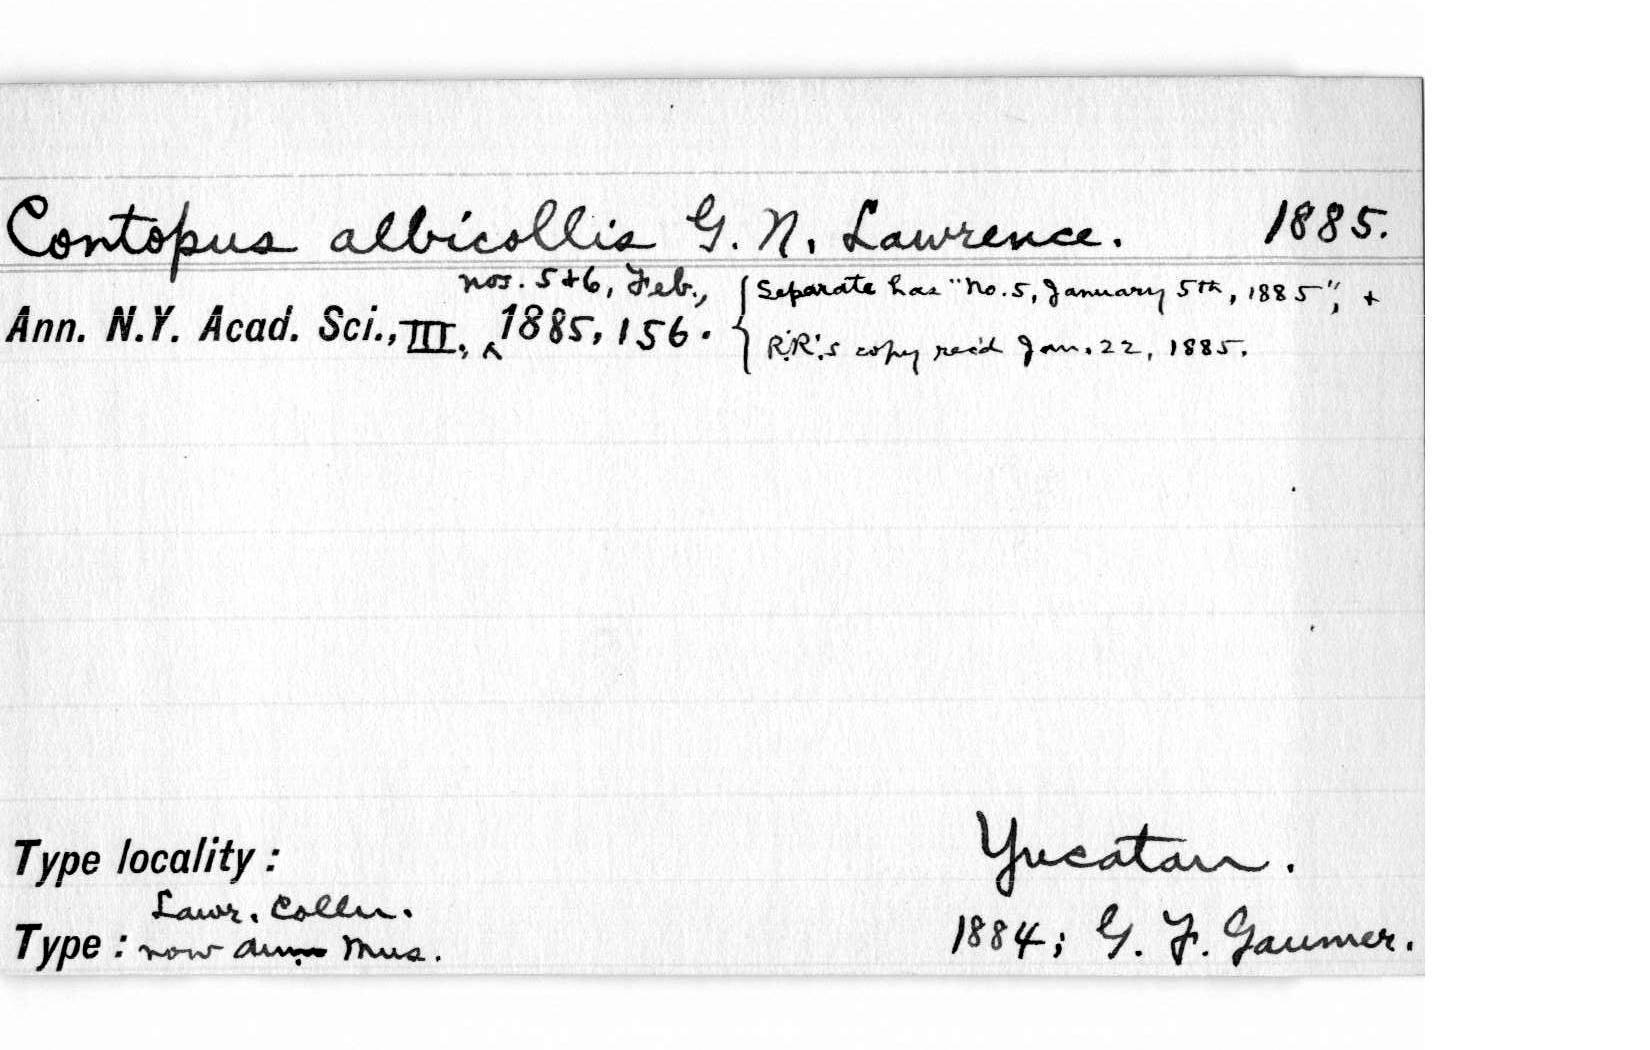 Contopus albicollis G. N. Lawrence. 1885.
nos. 5+6, Feb., { Separate has "No. 5, January 5th, 1885", +
Ann. N.Y. Acad. Sci., III, ^ 1885, 156. R.R.'s copy rec'd Jan. 22, 1885.
Type locality: Yucatan.
Lawr. Colln.
Type: now Mus. 1884; G. F. Gaumer.